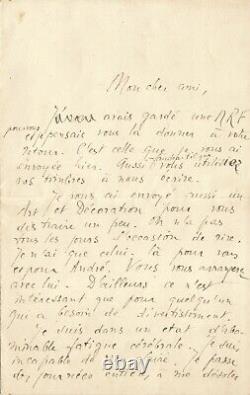 Mon cher ami,
J'avais gardé une NRF
et pensais vous la donner à votre
retour. C'est celle que je vous ai
envoyée hier. Aussi vous
vos timbres à nous écrire.
Je vous ai envoyé aussi un
Art et Décoration pour vous
un peu. On n'a pas
tous les jours l'occasion de rire.
Je n'ai que celui-là pour
André. Vous vous
avec lui. D'ailleurs ce n'est
intéressant que pour quelqu'un
qui a besoin de divertissement.
Je suis dans un état d'abo-
minable fatigue cérébrale. Je suis
incapable de Je passe
des journées entières à me désoler